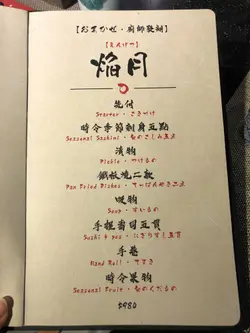 【おまかせ・廚師發辦】
【えんげつ】
焔月
先付
Starter・さきづけ
時令季節刺身五點
Seasonal Sashimi
漬物
Pickle・つけもの
鐵板燒二款
Pan Fried Dishes
吸物
Soup・すいもの
手握壽司五貫
Sushi 5 pcs・にぎりすし五貫
手卷
Hand Roll・てまき
時令果物
Seasonal Fruit
$980